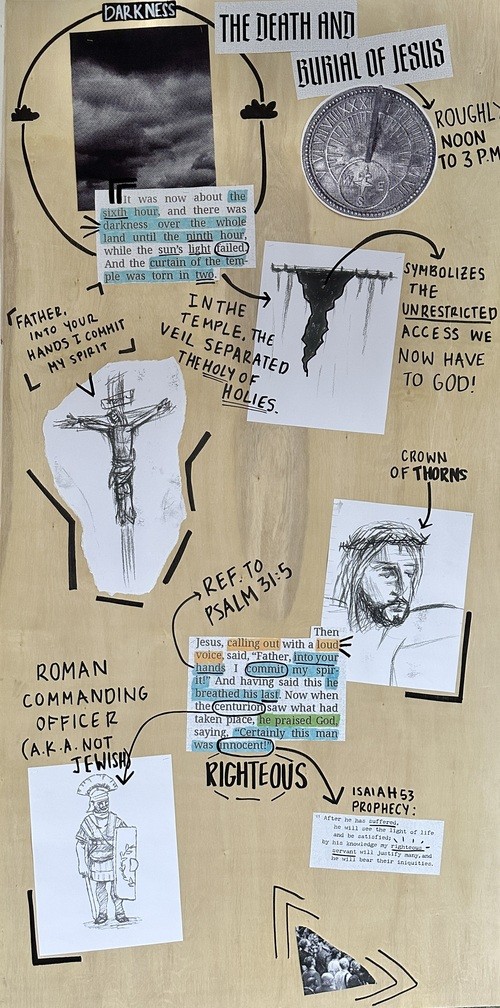 DARKNESS
THE DEATH AND
BURIAL OF JESUS
ROUGHLY
NOON
TO 3 P.M
It was now about the
sixth hour, and there was
darkness over the whole
land until the ninth hour,
while the sun's light failed.
And the curtain of the tem-
ple was torn in two.
IN THE
TEMPLE, THE
VEIL SEPARATED
THE HOLY OF
HOLIES.
SYMBOLIZES
THE
UNRESTRICTED
ACCESS WE
NOW HAVE
TO GOD!
FATHER,
INTO YOUR
HANDS I COMMIT
MY SPIRIT
CROWN
OF THORNS
REF. TO
PSALM 31:5
Then
Jesus, calling out with a loud
voice, said, “Father, into your
hands I commit my spir-
it!” And having said this he
breathed his last. Now when
the centurion saw what had
taken place, he praised God,
saying, “Certainly this man
was innocent!”
RIGHTEOUS
ROMAN
COMMANDING
OFFICER
(A.K.A. NOT
JEWISH)
ISAIAH 53
PROPHECY:
"After he has suffered,
he will see the light of life
and be satisfied;
by his knowledge my righteous
servant will justify many, and
he will bear their iniquities.